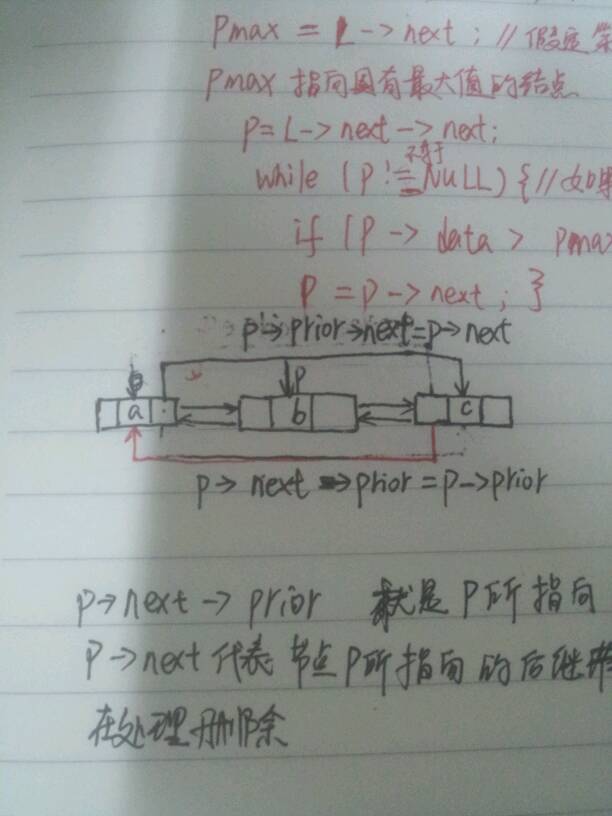 Pmax = L -> next ; // 假定第
Pmax 指向具有最大值的结点
P = L -> next -> next;
不等于
while (P != NULL) { // 如果
if (P -> data > Pmax
P = P -> next ; }
p -> prior -> next = p -> next
P
a b c
p -> next -> prior = p -> prior
p -> next -> prior 就是 P 所指向
P -> next 代表 节点 P 所指向 的后继
在处理删除